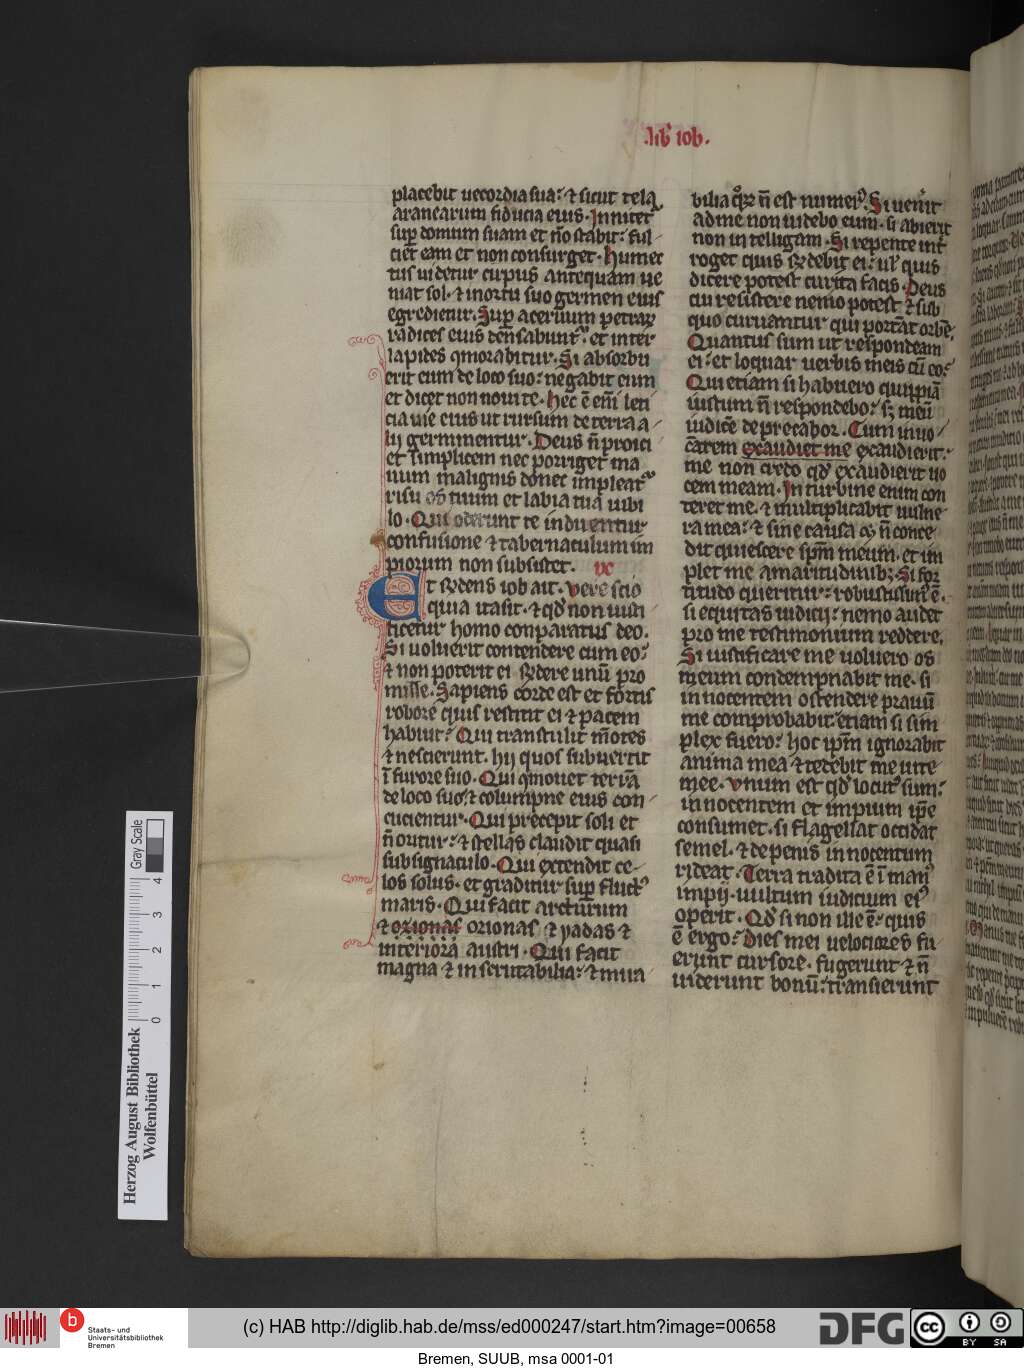 .lib' iob.
placebit uecordia sua: ⁊ sicut tela
aranearum fiducia eius. Innitet᷑
sup domum suam et nō stabit: ful-
ciet eam et non consurget. humec
tus uidetur cupus anteq̄uam ue
niat sol. ⁊ in ortu suo germen eius
egredietur. Sup aceruum petraꝝ
radices eius dēnsabunt᷑: et inter
lapides ꝯmorabitur. Si absorbu
erit eum de loco suo: negabit eum
et dicet non noui te. hec ē em̄ leti
cia uie eius ut rursum de terra a-
lij germinentur. Deus n̄ proici
et simplicem nec porriget ma
num malignis donec impleat᷑
risu os tuum et labia tua iubi
lo. Qui oderunt te induentur
confusione ⁊ tabernaculum im
piorum non subsistet. ix
Et rn̄dens iob ait. vere scio
quia ita sit. ⁊ qd̓ non iusti-
ficetur homo conparatus deo.
Si uoluerit contendere cum eo:
⁊ non poterit ei rn̄dere unū pro
mille. Sapiens corde est et fortis
robore quis restitit ei ⁊ pacem
habuit: Qui transtulit mōtes
⁊ nescierunt. hij quos subuertit
ī furore suo. Qui ꝯmouet terrā
de loco suo: ⁊ columpne eius con-
cucientur. Qui precepit soli et
n̄ oritur: ⁊ stellas claudit quasi
sub signaculo. Qui extendit ce-
los solus. et graditur sup fluctꝰ
maris. Qui facit arcturum
⁊ orionas orionas ⁊ yadas ⁊
interiora austri. Qui facit
magna ⁊ inscrutabilia: ⁊ mira
bilia qͦꝝ n̄ est numerꝰ. Si uen̓it
ad me non uidebo eum. si abierit
non intelligam. Si repente int̓
roget quis rn̄debit ei: ul̓ quis
dicere potest cur ita facis. Deus
cui resistere nemo potest ⁊ sub
quo curuantur qui portāt orbē.
Quantus sum ut respondeam
ei: et loquar uerbis meis cū eo:
Qui etiam si habuero quippiā
iustum n̄ respondebo: sꝫ meū
iudicē deprecabor. Cum inuo-
cārem exaudiet me exaudierit.
me non credo qd̓ exaudierit uo
cem meam. In turbine enim con
teret me. ⁊ multiplicabit uulne-
ra mea: ⁊ sine causa qꝫ n̄ conce-
dit quiescere spm̄ meum. et im
plet me amaritudinibꝫ. Si for
titudo queritur: robustissim̓ ē.
si equitas iudicij: nemo audet
pro me testimonium reddere.
Si iustificare me uoluero os
meum condempnabit me. si
innocentem ostendere prauū
me comprobabit. etiam si sim
plex fuero: hoc ip̄m ignorabit
anima mea ⁊ tedebit me uite
mee. vnum est qd̓ locutꝰ sum:
innocentem et impium ip̄e
consumet. si flagellat occidat
semel. ⁊ de penis innocentum
rideat. Terra tradita ē ī manꝰ
impij. uultum iudicum eiꝰ
operit. Qd̓ si non ille ē: quis
ē ergo: Dies mei uelociores fu
erunt cursore. fugerunt ⁊ n̄
uiderunt bonū: transierunt
Gray Scale
0 1 2 3 4
Herzog August Bibliothek
Wolfenbüttel
b
Staats- und
Universitätsbibliothek
Bremen
(c) HAB http://diglib.hab.de/mss/ed000247/start.htm?image=00658
DFG
cc
BY SA
Bremen, SUUB, msa 0001-01